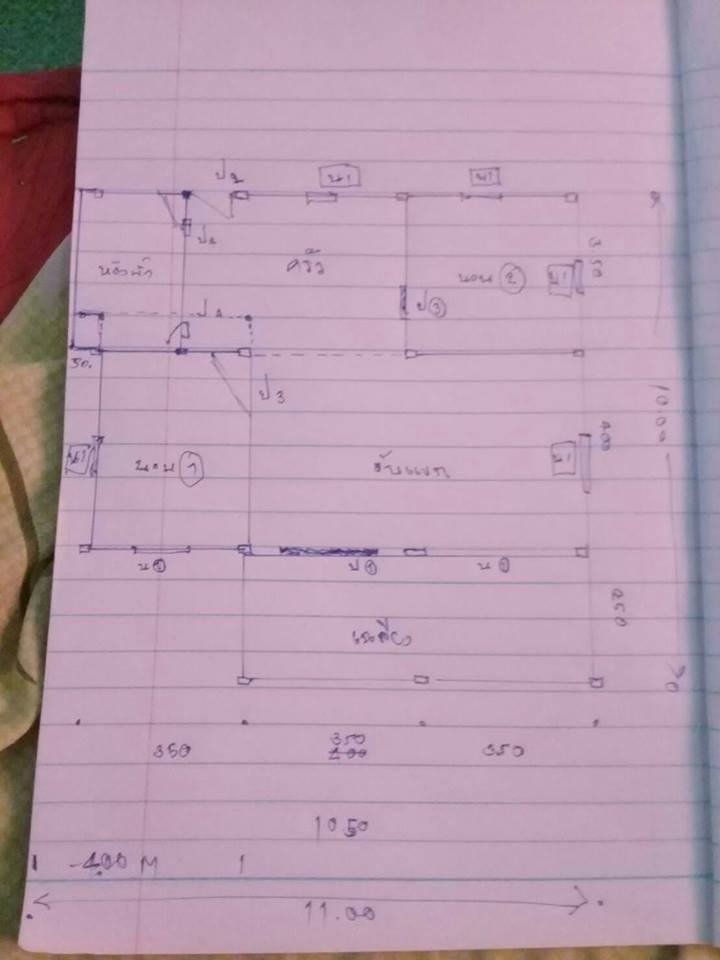 ป2
น1
น1
ป2
ครัว
นอน ②
น1
ป③
350
ป2
50.
ป3
10.00
น1
นอน ①
รับแขก
น1
400
น①
ป①
น①
250
เฉลียง
350
350
400
350
1050
4.00 M
11.00